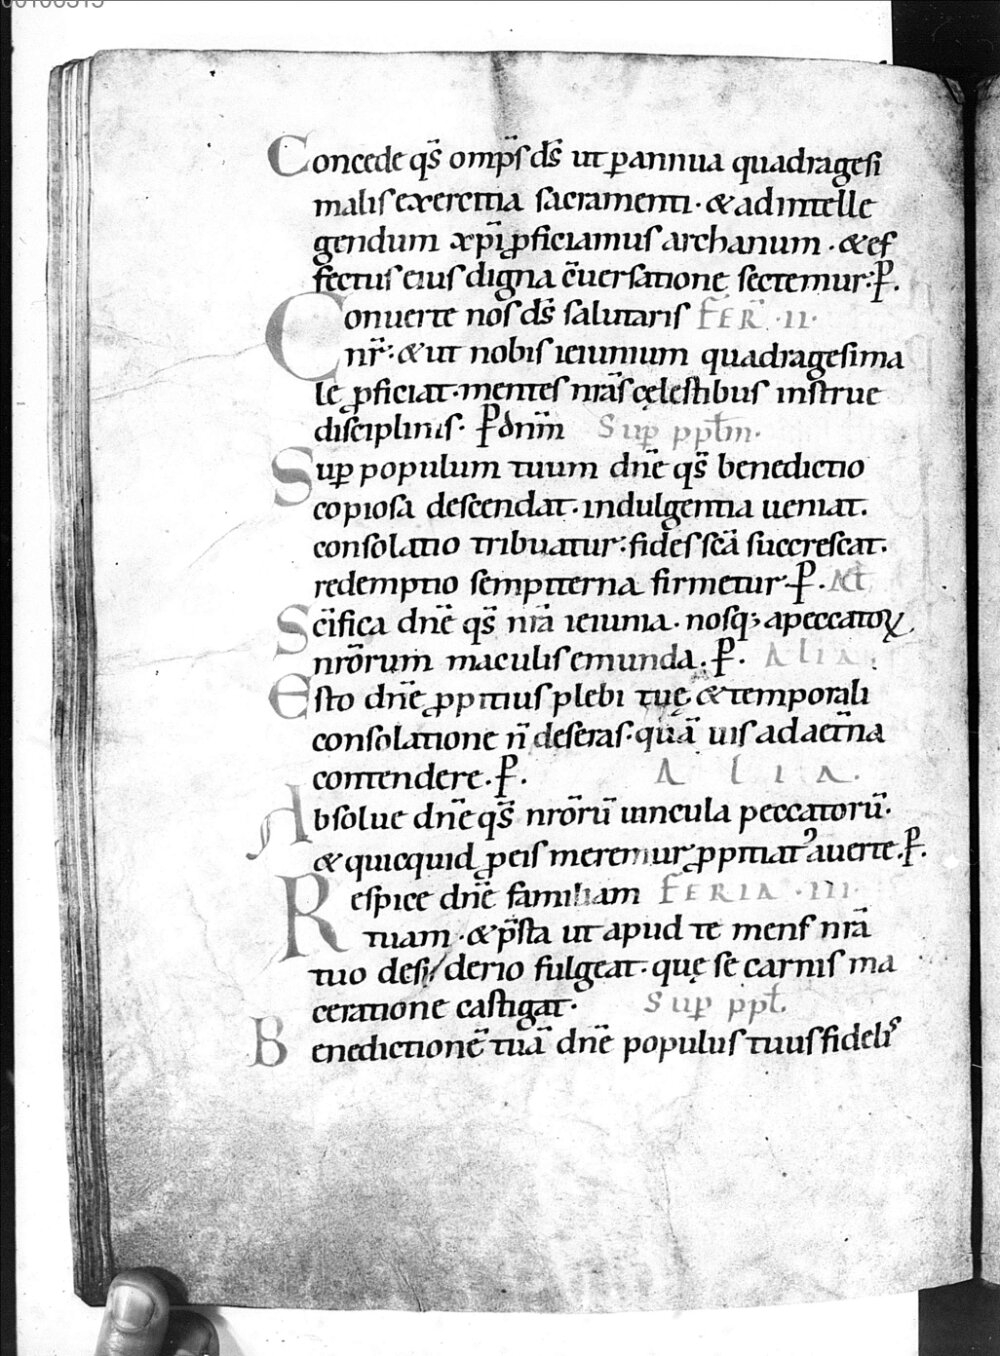 Concede qs̄ omp̄s ds̄ ut ꝑ annua quadragesi
malis exercitia sacramenti · & ad intelle
gendum xp̄i ꝓficiamus archanum · & ef
fectus eius digna c̄uersatione sectemur : P̄.
Conuerte nos ds̄ salutaris FER̄ · II ·
nr̄ : & ut nobis ieiunium quadragesima
le ꝓficiat · mentes nrās cęlestibus instrue
disciplinis · P̄ dnm̄ Suꝑ ppl̄m ·
Suꝑ populum tuum dnē qs̄ benedictio
copiosa descendat · indulgentia ueniat .
consolatio tribuatur : fides scā succrescat .
redemptio sempiterna firmetur · P̄ · Al̄
Sc̄ifica dnē qs̄ nrā ieiunia · nosq; a peccatoꝝ
nrōrum maculis emunda . P̄ . ALIA .
Esto dnē ꝓpitius plebi tuę & temporali
consolatione n̄ deseras · quā uis ad aetn̄a
contendere . P̄ . ALIA .
Absolue dnē qs̄ nrōrū uincula peccatorū .
& quicquid ꝓ eis meremur ꝓpitiatꝰ auerte . P̄ .
Respice dnē familiam FERIA · III ·
tuam · & p̄sta ut apud te mens nrā
tuo desi/derio fulgeat · quę se carnis ma
ceratione castigat · Suꝑ ppl̄ .
Benedictionē tuā dnē populus tuus fidelis